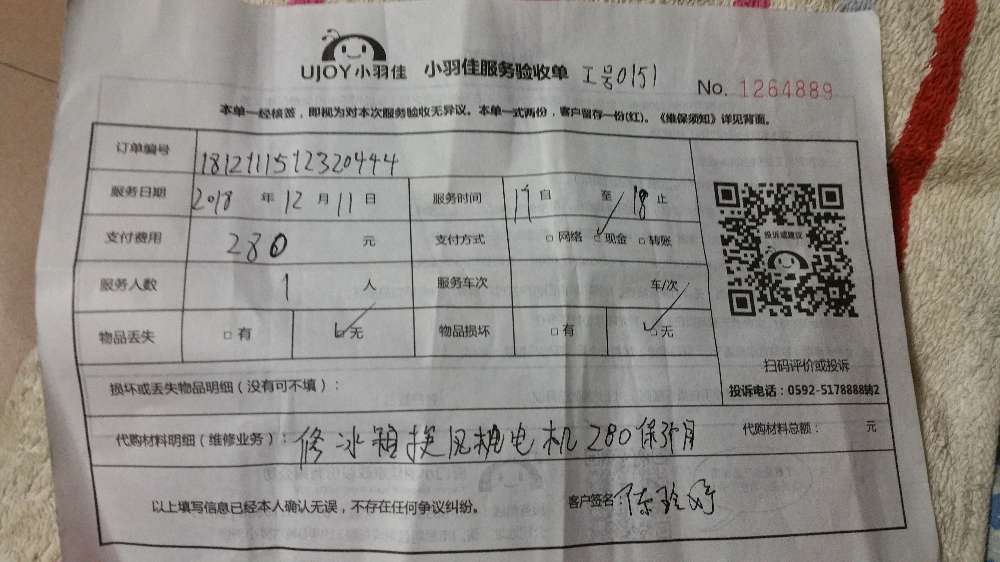 UJOY小羽佳 小羽佳服务验收单 工号0151
No. 1264889
本单一经核签，即视为对本次服务验收无异议。本单一式两份，客户留存一份(红)。《维保须知》详见背面。
订单编号 1812111512320444
服务日期 2018 年 12 月 11 日 服务时间 17 自 至 18 止
支付费用 280 元 支付方式 □网络 □现金 □转账
投诉或建议
服务人数 1 人 服务车次 车/次
物品丢失 □有 □无 物品损坏 □有 □无
扫码评价或投诉
投诉电话：0592-5178888转2
损坏或丢失物品明细（没有可不填）：
代购材料明细（维修业务）： 修冰箱换风机电机280保3个月 代购材料总额： 元
以上填写信息已经本人确认无误，不存在任何争议纠纷。 客户签名 陈